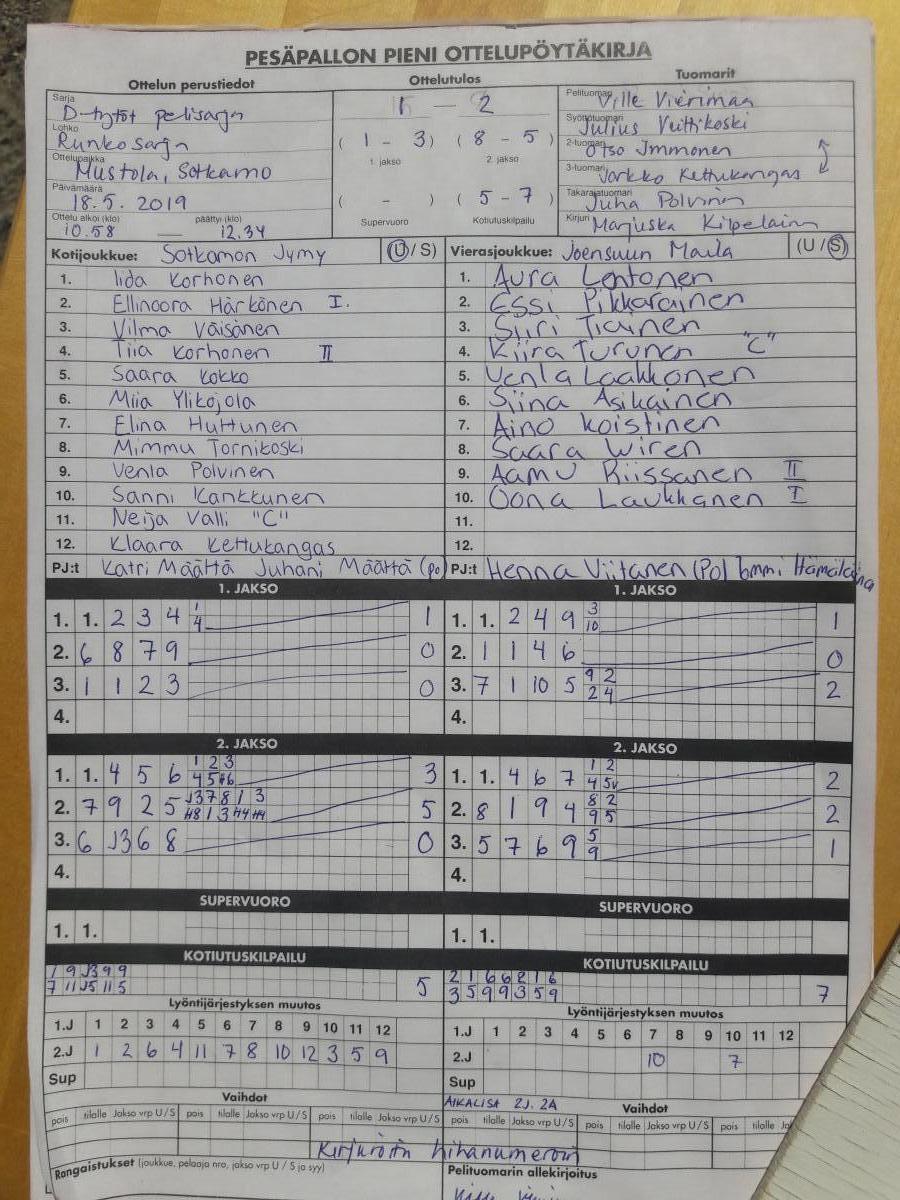 PESÄPALLON PIENI OTTELUPÖYTÄKIRJA
Ottelun perustiedot
Ottelutulos
Tuomarit
Sarja D-tytöt pelisarja
Lohko Runkosarja
Ottelupaikka Mustola, Sotkamo
Päivämäärä 18.5.2019
Ottelu alkoi (klo) päättyi (klo)
10.58 — 12.34
1 — 2
(1 - 3) (8 - 5)
1. jakso 2. jakso
( - ) (5 - 7)
Supervuoro Kotiutuskilpailu
Pelituomari Ville Vierimaa
Syöttötuomari Julius Veittikoski
2-tuomari Otso Immonen
3-tuomari Jarkko Kettukangas
Takarajatuomari Juha Polvinen
Kirjuri Marjuska Kilpeläin
Kotijoukkue: Sotkamon Jymy (U/S)
1. Iida Korhonen
2. Ellinoora Härkönen I.
3. Vilma Väisänen
4. Tiia Korhonen II
5. Saara Kokko
6. Miia Ylikojola
7. Elina Huttunen
8. Mimmu Tornikoski
9. Venla Polvinen
10. Sanni Kankkunen
11. Neija Valli "C"
12. Klaara Kettukangas
PJ:t Katri Määttä Juhani Määttä (po)
Vierasjoukkue: Joensuun Maila (U/S)
1. Aura Lehtonen
2. Essi Pikkarainen
3. Siiri Tiainen
4. Kiira Turunen "C"
5. Venla Laakkonen
6. Siina Asikainen
7. Aino Koistinen
8. Saara Wiren
9. Aamu Riissanen II
10. Oona Laukkanen I
11.
12.
PJ:t Henna Viitanen (Po)
1. JAKSO
1. 1. 2 3 4 1/4 1
2. 6 8 7 9 0
3. 1 1 2 3 0
4.
1. JAKSO
1. 1. 2 4 9 3/10 1
2. 1 1 4 6 0
3. 7 1 10 5 9 2 / 2 4 2
4.
2. JAKSO
1. 1. 4 5 6 1 2 3 3
2. 7 9 2 5 5
3. 6 J3 6 8 0
4.
2. JAKSO
1. 1. 4 6 7 1 2 2
2. 8 1 9 4 8 2 / 9 5 2
3. 5 7 6 9 5/9 1
4.
SUPERVUORO
1. 1.
SUPERVUORO
1. 1.
KOTIUTUSKILPAILU
1 9 J3 9 9
7 11 J5 11 5
5
KOTIUTUSKILPAILU
2 1 6 6 8 1 6
3 5 9 9 3 5 9
7
Lyöntijärjestyksen muutos
1.J 1 2 3 4 5 6 7 8 9 10 11 12
2.J 1 2 6 4 11 7 8 10 12 3 5 9
Sup
Lyöntijärjestyksen muutos
1.J 1 2 3 4 5 6 7 8 9 10 11 12
2.J 10 7
Sup
AIKALISÄ 2J. 2A
Vaihdot
pois tilalle Jakso vrp U/S pois tilalle Jakso vrp U/S pois tilalle Jakso vrp U/S
Vaihdot
pois tilalle Jakso vrp U/S pois tilalle Jakso vrp U/S pois tilalle
Kirjuroin hihanumeroin
Rangaistukset (joukkue, pelaaja nro, jakso vrp U / S ja syy)
Pelituomarin allekirjoitus